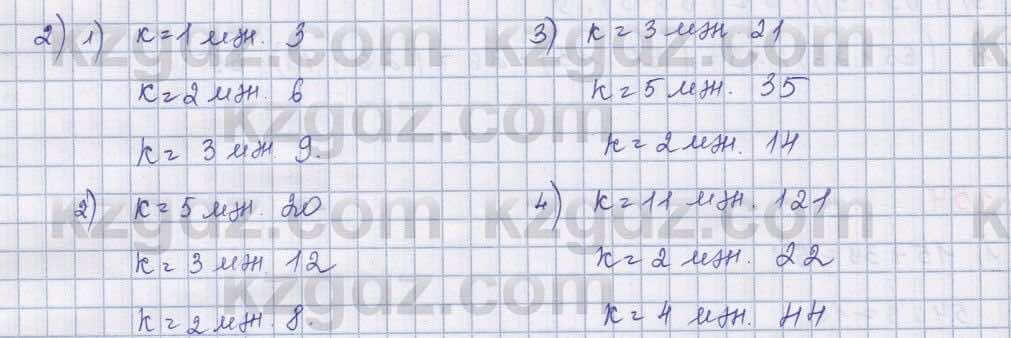 2) 1) к=1 мәж. 3
к=2 мәж. 6
к= 3 мәж 9.
2) к=5 мәж. 20
к= 3 мәж. 12
к=2 мәж. 8.
3) к= 3 мәж 21
к=5 мәж. 35
к=2 мәж. 14
4) к=11 мәж. 121
к=2 мәж. 22
к= 4 мәж. 44
kzgdz.com kzgdz.com
kzgdz.com
kzgdz.com kzgdz.com
kzgdz.com